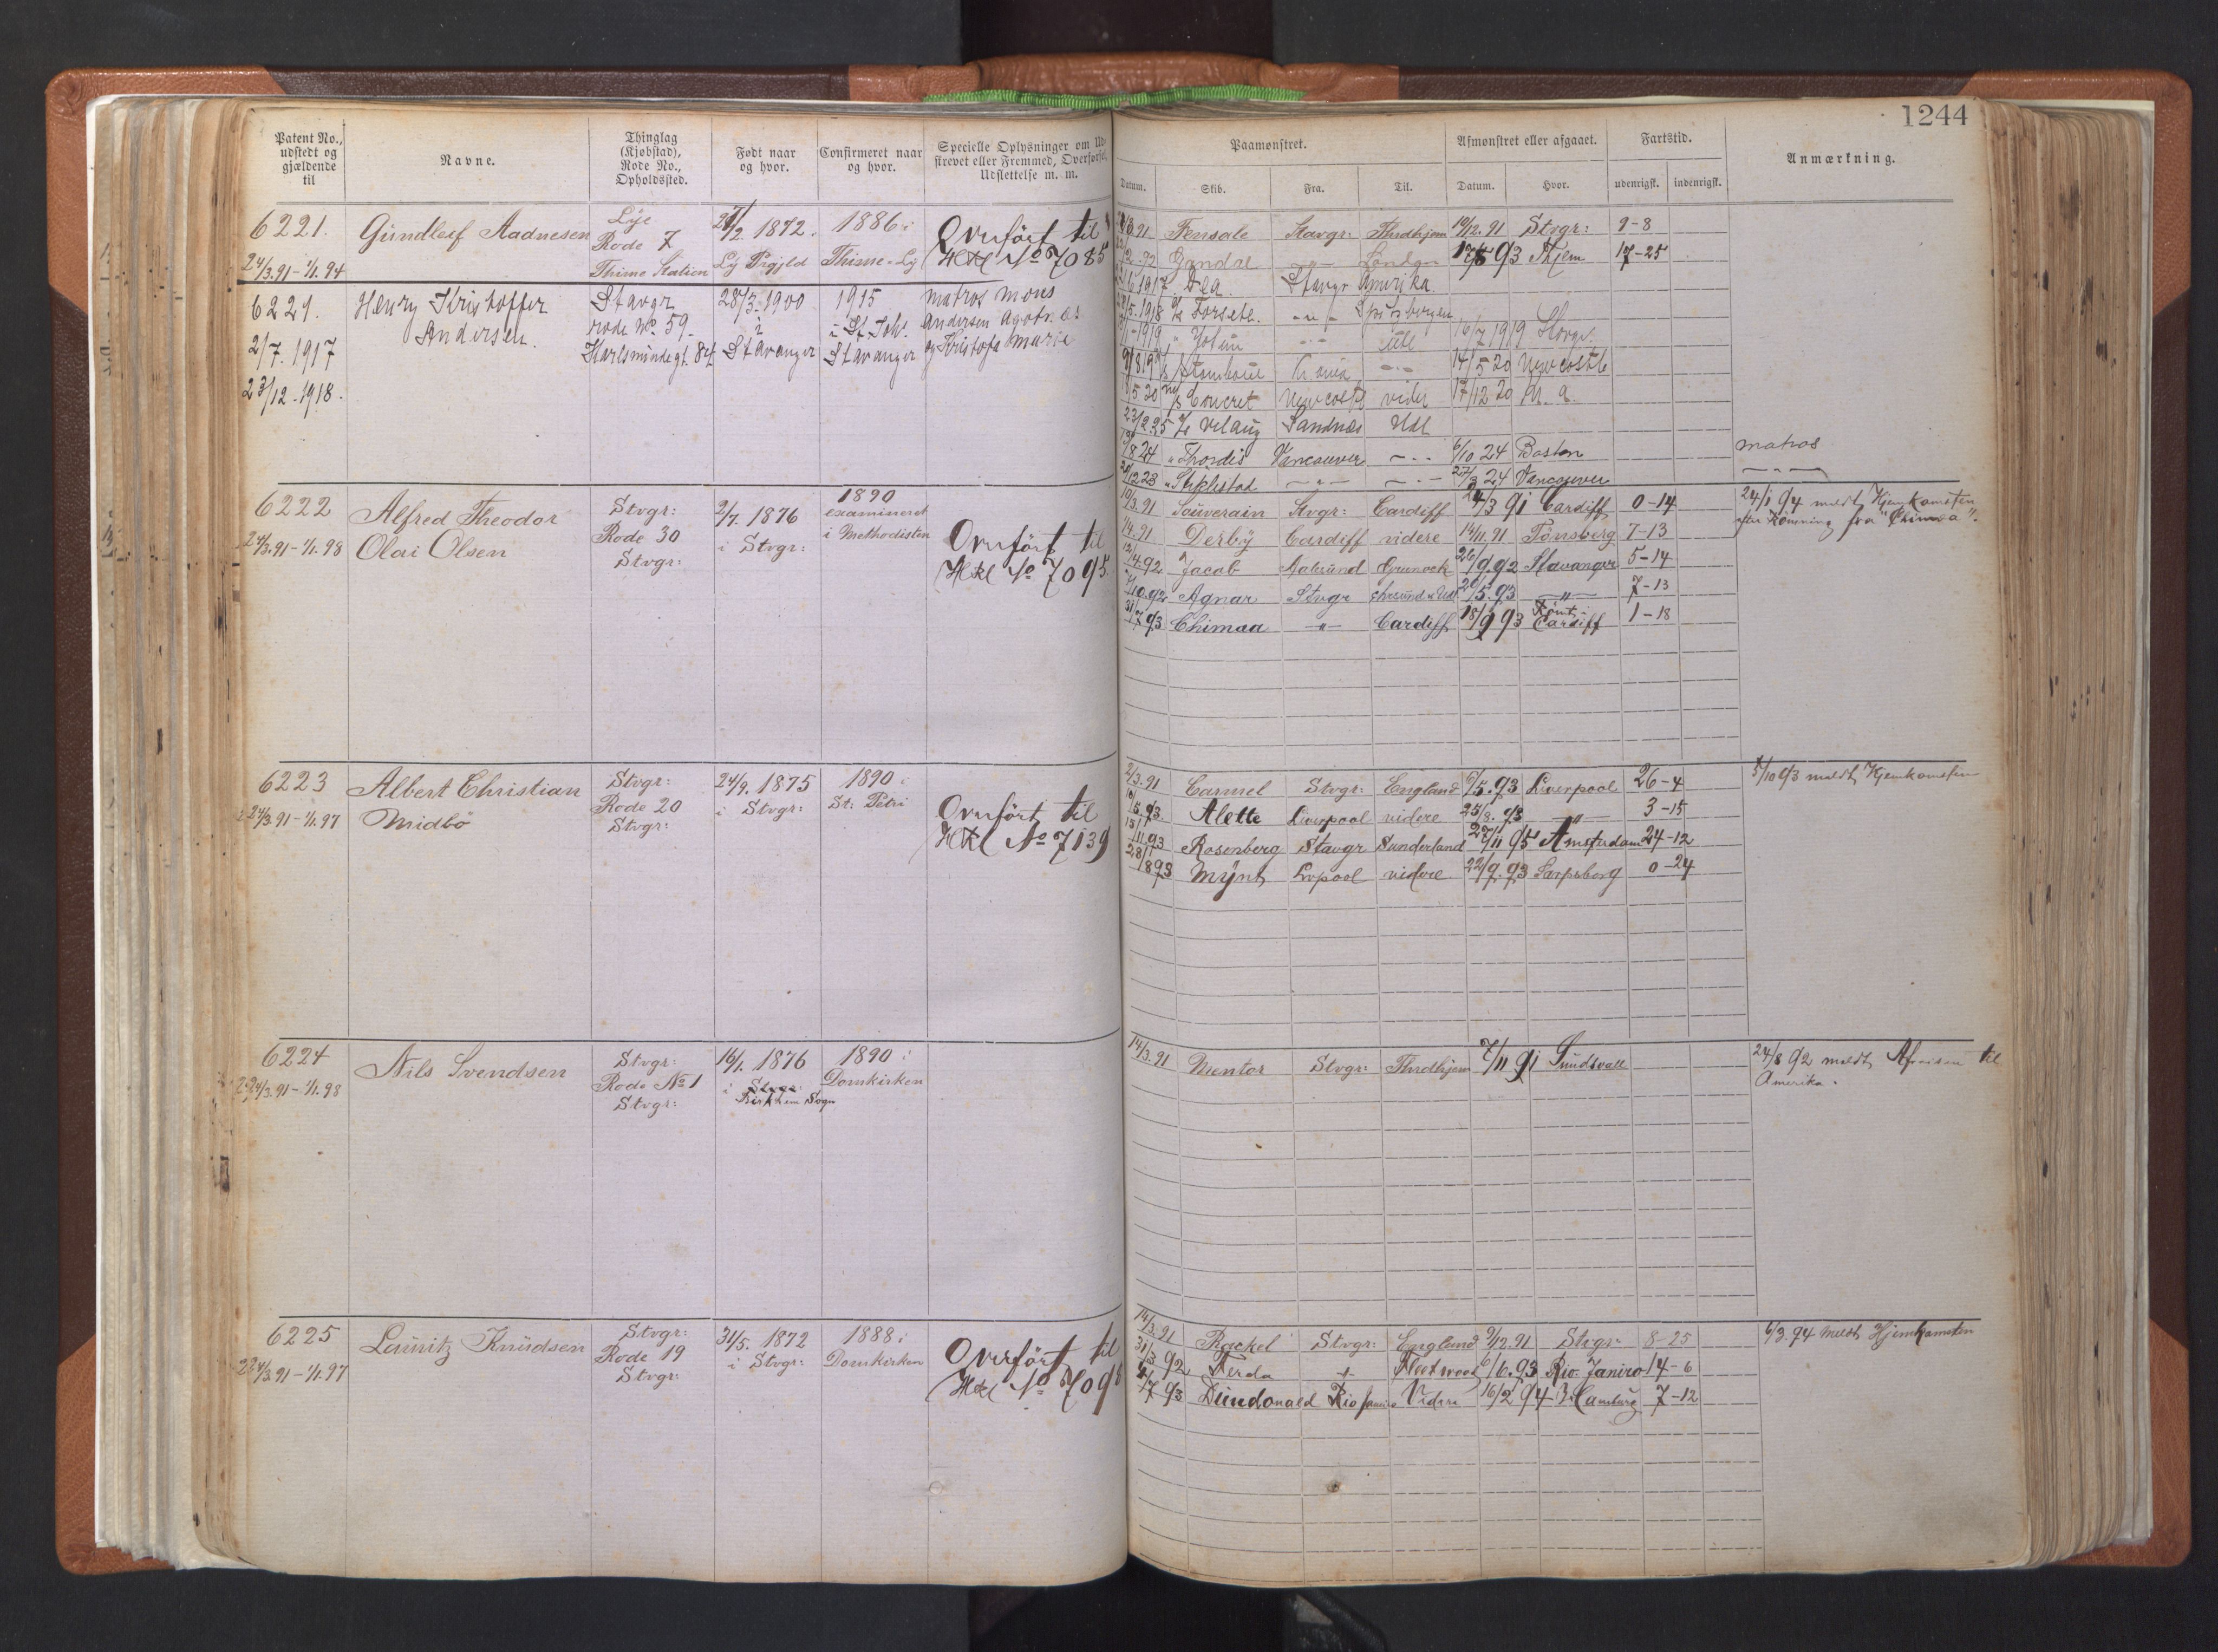 1244
Patent No., udstedt og gjældende til
Navne.
Thinglag (Kjøbstad), Rode No., Opholdssted.
Født naar og hvor.
Confirmeret naar og hvor.
Specielle Oplysninger om Ud-
strevet eller Fremmed, Overførsel,
Udslettelse m. m.
Paamønstret.
Afmønstret eller afgaaet.
Fartstid.
Anmærkning.
Datum. Skib. Fra. Til. Datum. Hvor. udenrigsk. indenrigsk.
6221. Gündleif Aadnesen Lye 1872. 1886 i Overført til
Rode 7 Hkl No 7085
24/3.91-1/1.94 Thime Station Ly Prgjld Thime - Ly
Fensale Stavgr: Thrdhjem 10/12.91 Stvgr: 9-8
93 Thjem 17-25
6221. Henry Kristoffer Stavgr 28/3.1900 1915 matros Mons
Andersen. rode No. 59. i i St. Joh. Andersen
2/7.1917 Karlsmindegt. 84 Stavanger Stavanger og Kristofa Marie
23/12.1918.
Dea Stavgr Amerika.
Forsete. -"- Spitzbergen
16/7 1919
14/5 20 Newcastle
Concret Newcastle vider 17/12 20
23/2 25 Sandnes Udl
" Thordis Vancouver -"- 6/10 24 Boston matros
" Stiklestad -"- -"- 27/3 24 Vancouver -"-
6222 Alfred Theodor Stvgr: 2/7. 1876 1890
Olai Olsen Rode 30 i Stvgr: examineret
24/3.91-1/1.98 Stvgr: i Methodisten Overført til
Hkl No 7095
10/3.91 Souverain Stvgr: Cardiff 24/3 91 Cardiff 0-14 24/1 94 meldt Hjemkomsten
efter Rømning fra "Chimaa".
Derby Cardiff videre 14/11.91 Tønsberg 7-13
12/4.92 Jacob Aalesund Grenock 26/9.92 Stavanger 5-14
Agnar Stvgr 20/5.93 -"- 7-13
31/7 93 Chimaa -"- Cardiff 18/9 93 Rømt Cardiff 1-18
6223 Albert Christian Stvgr: 24/9. 1875 1890 i
Midbö Rode 20 i Stvgr: St: Petri
24/3.91-1/1.97 Stvgr: Overført til
Hkl No 7139
2/3.91 Carmel Stvgr: England 6/5.93 Liverpool 26-4 5/10 93 meldt Hjemkomsten
Alette Liverpool videre 25/8.93 -"- 3-15
Rosenberg Stavgr Sunderland 27/11 95 Amsterdam 24-12
28/8 93 Mynt Lvpool videre 22/9.93 Sarpsborg 0-24
6224 Nils Svendsen Stvgr: 16/1. 1876 1890 i
Rode No 1 i Stvgr: Domkirken
24/3.91-1/1.98 Stvgr: Sogn
14/3.91 Mentor Stvgr: Thrdhjem 7/11 91 Sundsvall 24/8 92 meldt Afreisen til
Amerika.
6225 Lauritz Knüdsen Stvgr: 31/5. 1872 1888 i
Rode 19 i Stvgr: Domkirken Overført til
24/3.91-1/1.97 Stvgr: Hkl No
14/3.91 Rackel Stvgr: England 9/12.91 Stvgr: 8-25 6/3.94 meldt Hjemkomsten
31/3 92 Ferda Fleetwood 6/6.93 Rio Janiro 14-6
Dundonald Rio Janiro Videre 16/2 94 Hamburg 7-12